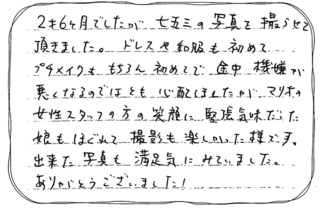 2才6ヶ月でしたが 七五三の写真を撮らせて
頂きました。ドレスや和服も初めて
プチメイクも もちろん 初めてで 途中 機嫌が
悪くなるのではとも心配しましたが、マリオの
女性スタッフの方の笑顔に 緊張気味だった
娘もほぐれて 撮影も楽しかった様です。
出来た写真も 満足気にみていました。
ありがとうございました!